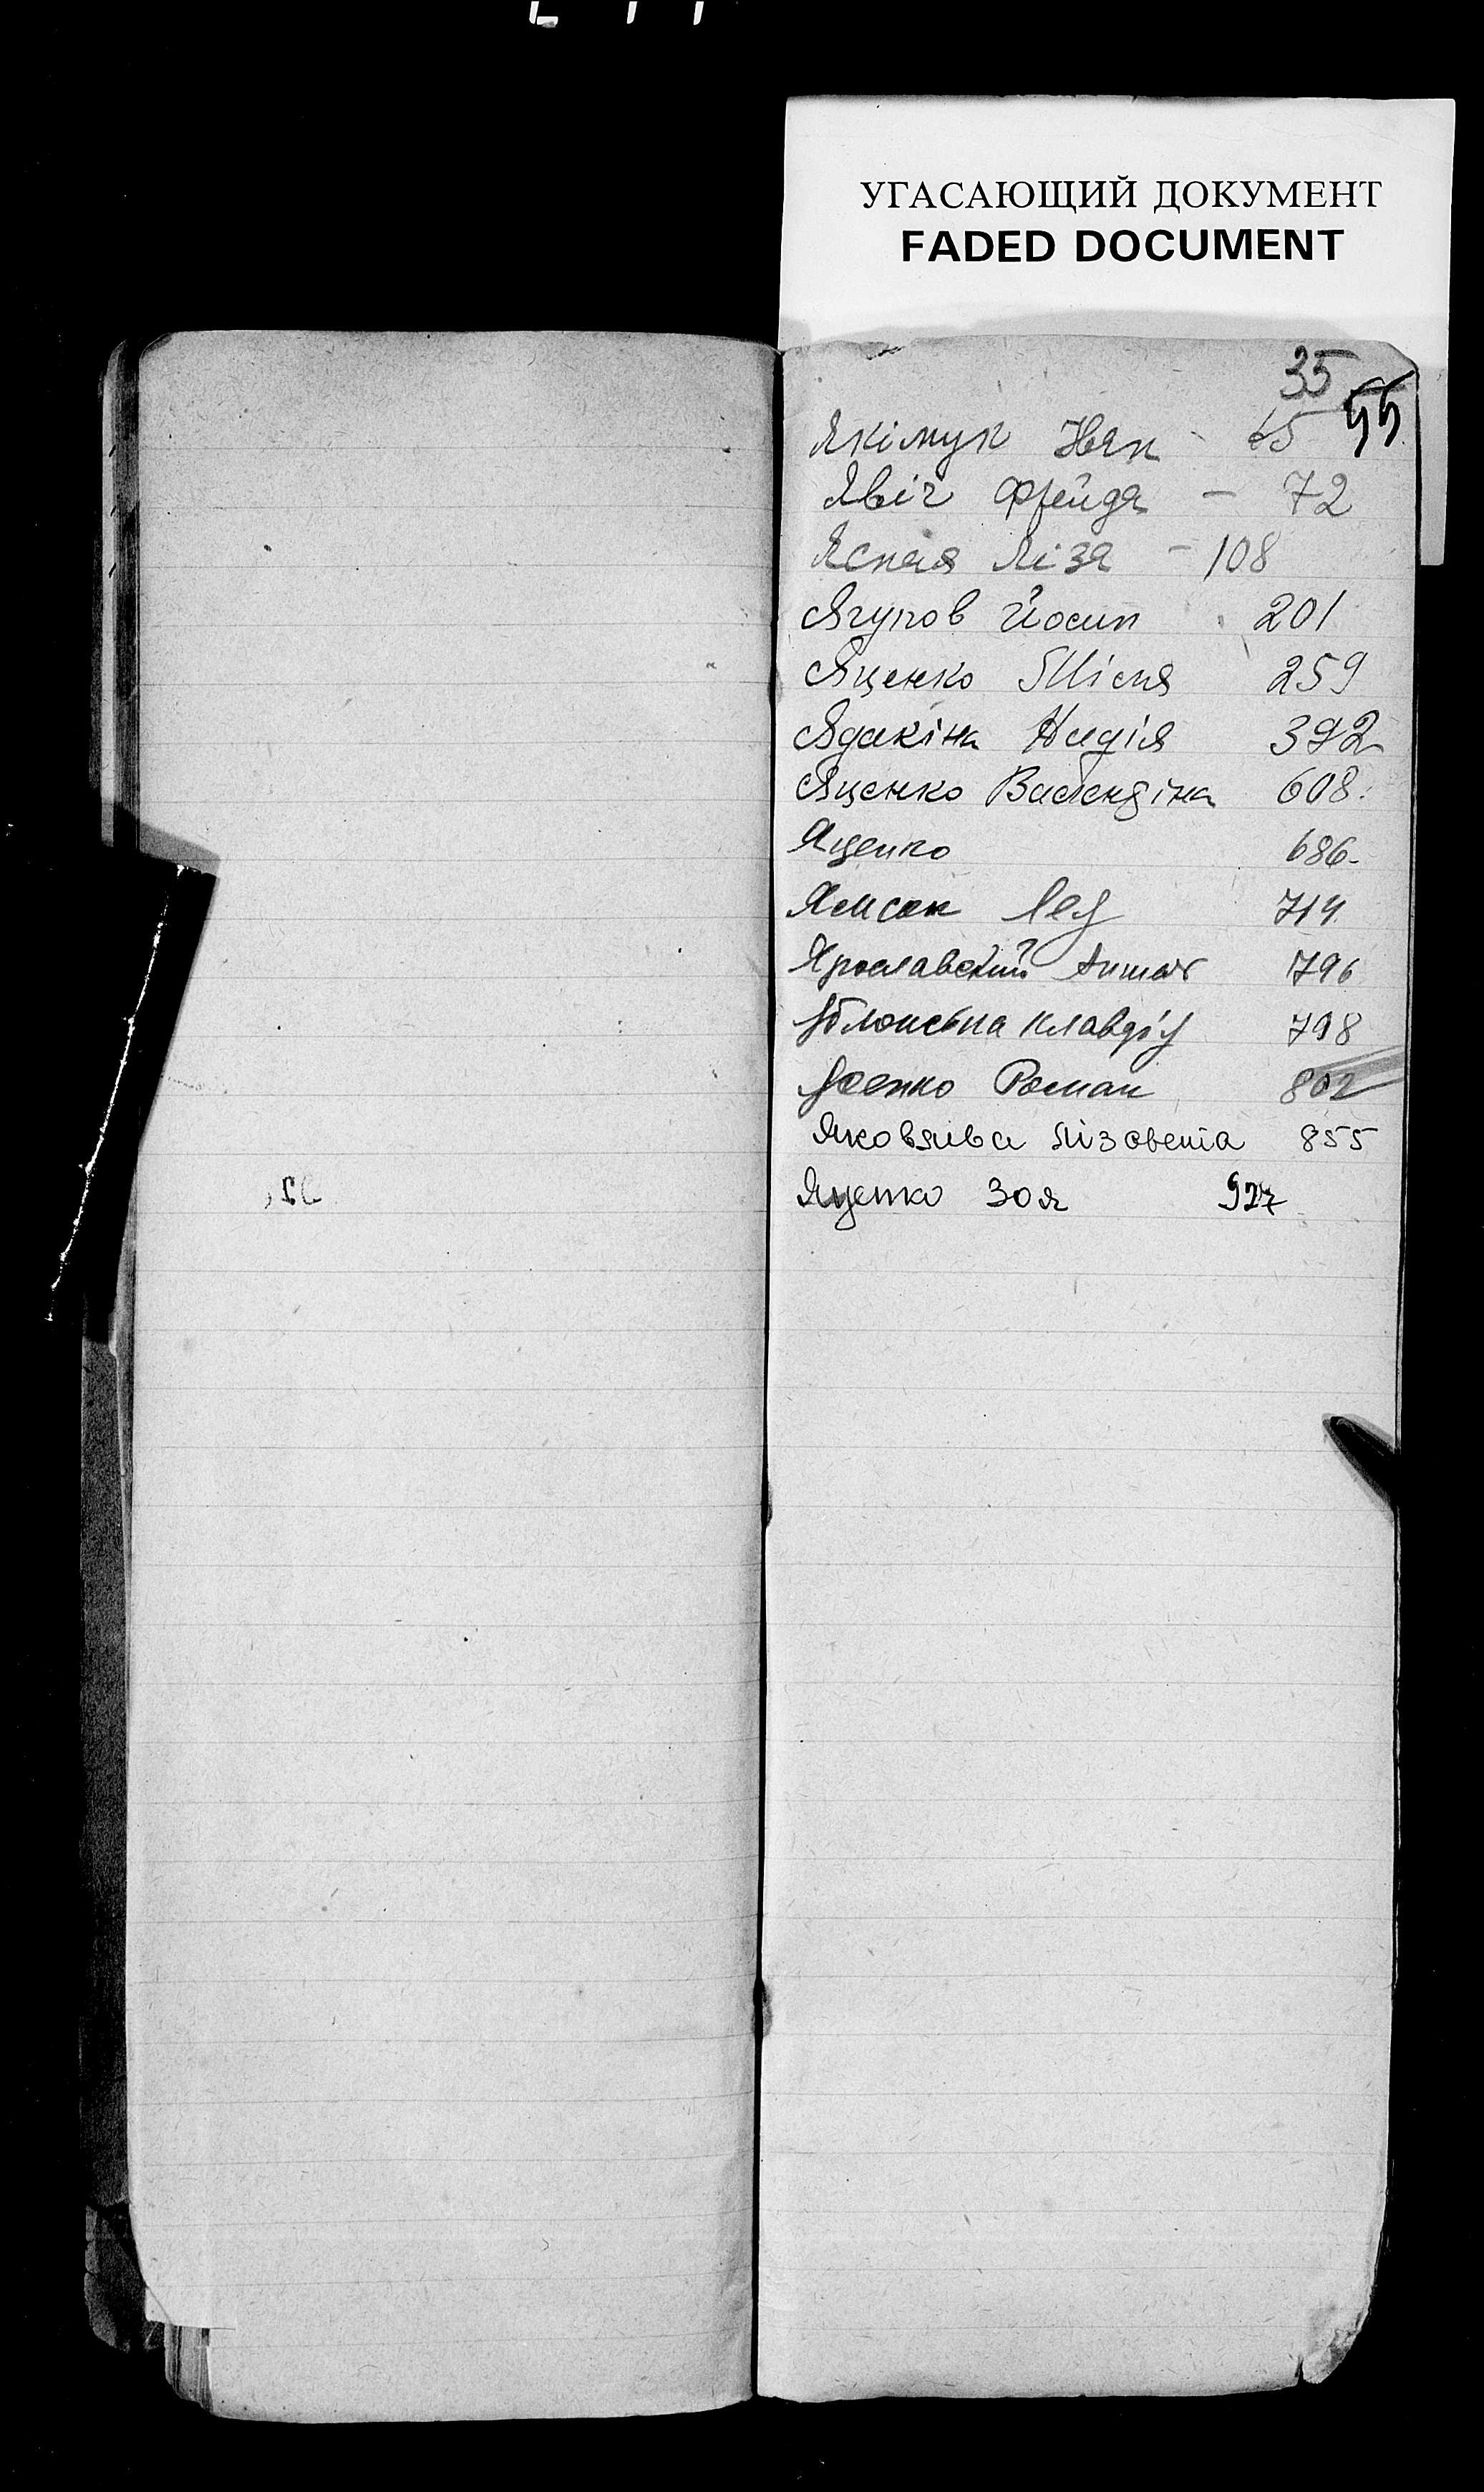 УГАСАЮЩИЙ ДОКУМЕНТ
FADED DOCUMENT
35
55
Якімук Іван - 65
Явіч Фрейда - 72
Ясная Ліза - 108
Ягупов Йосип 201
Яценко 259
Ядакіна Надія 392
Яценко Валендіна 608.
Яценко 686-
714
Ярославский 796
Яблонська Клавдія 798
Роман 802
Лізовета 855
Яценко Зоя 927